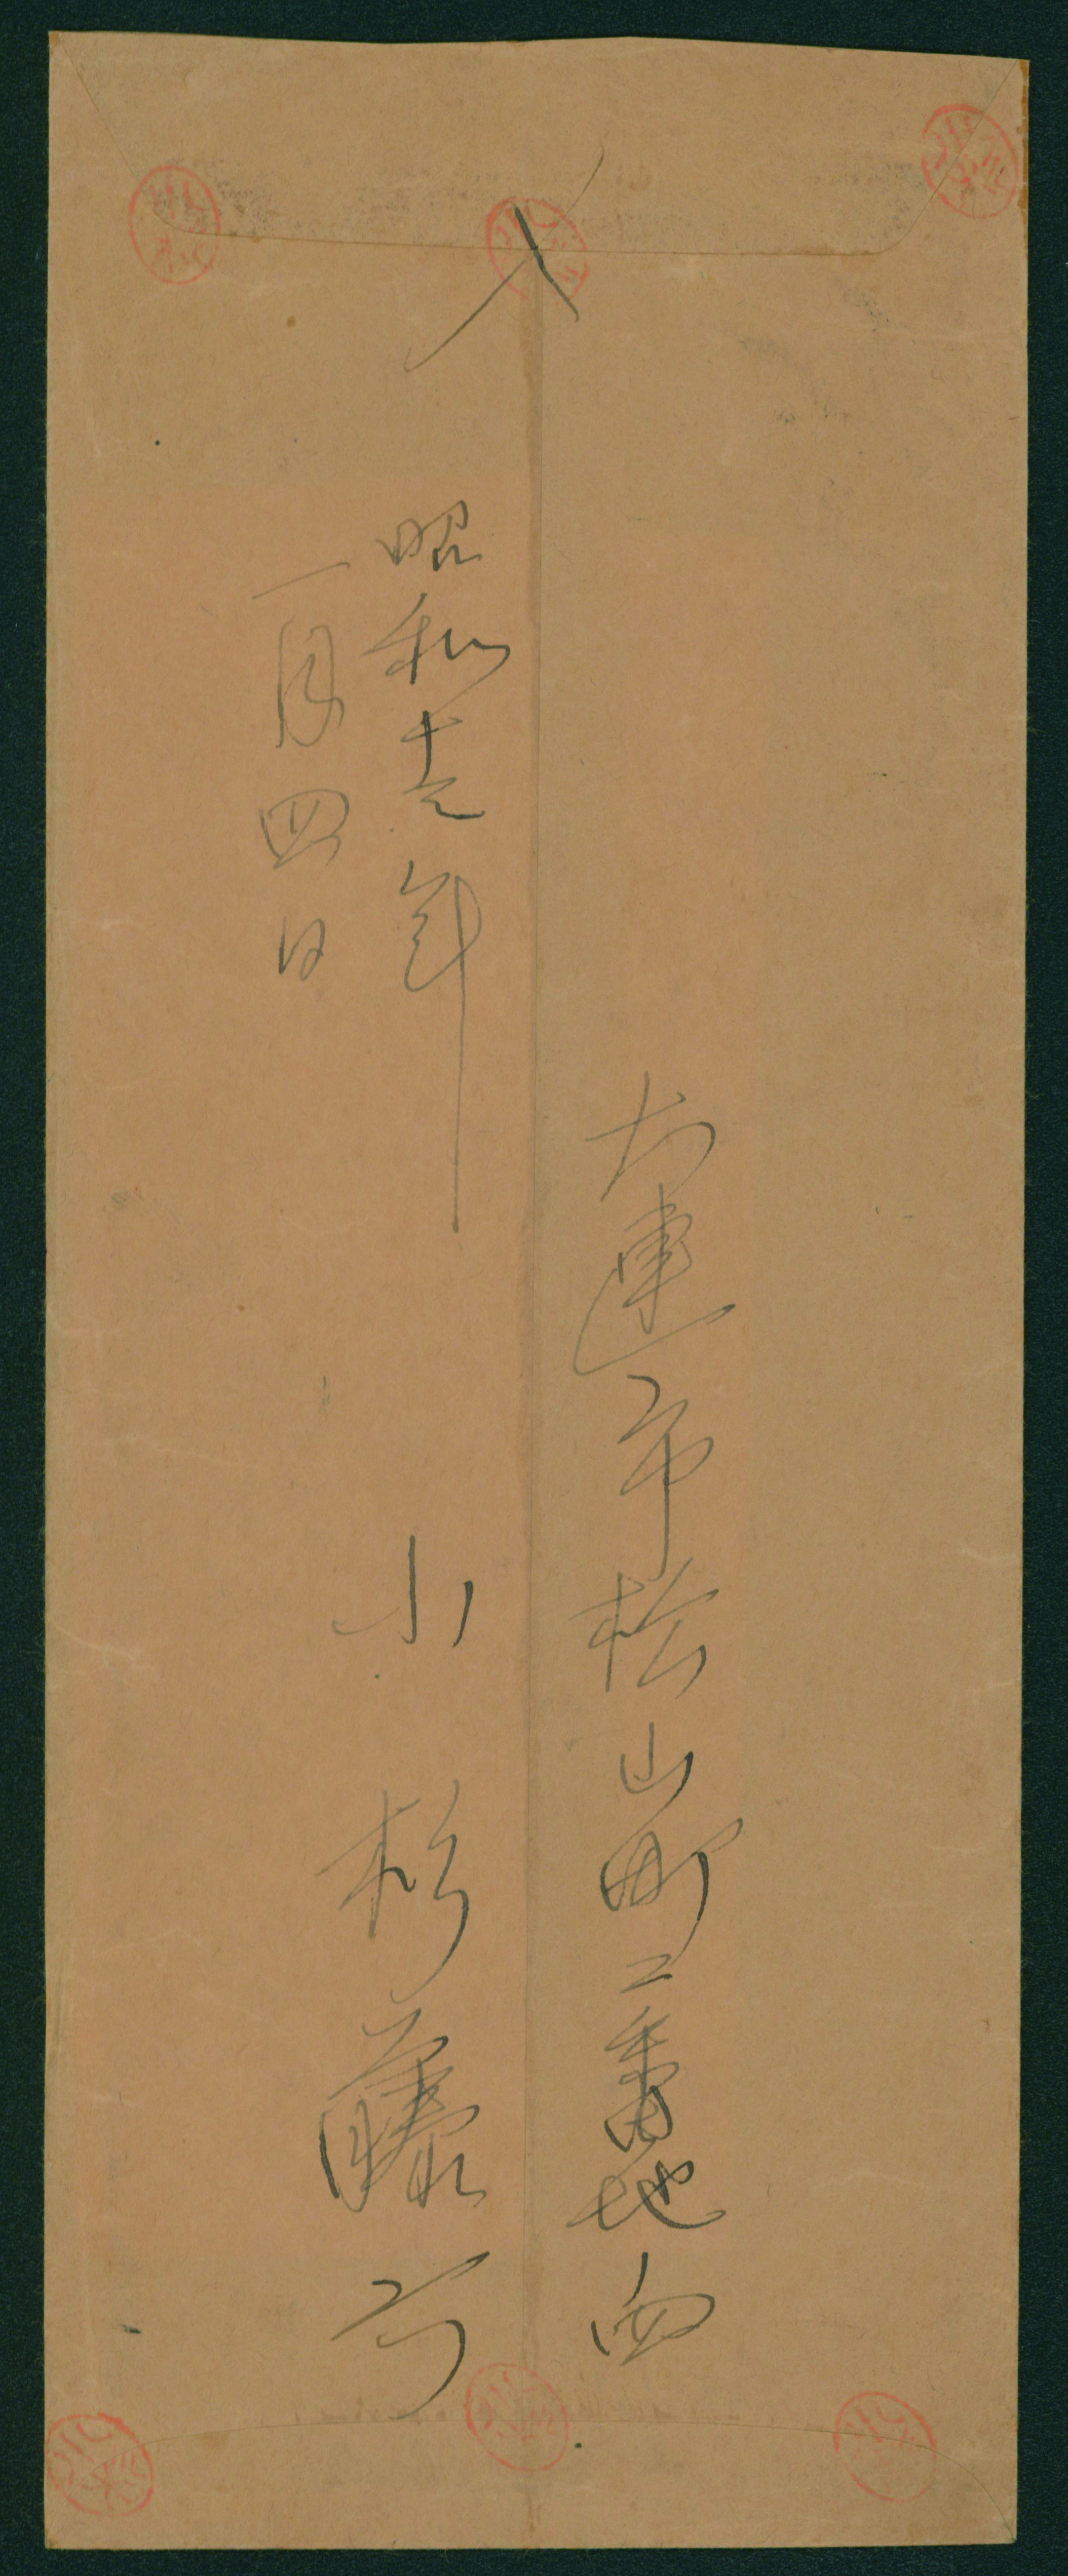 〆
大連市桧山町二番地ノ四
昭和十年
一月四日
小杉藤